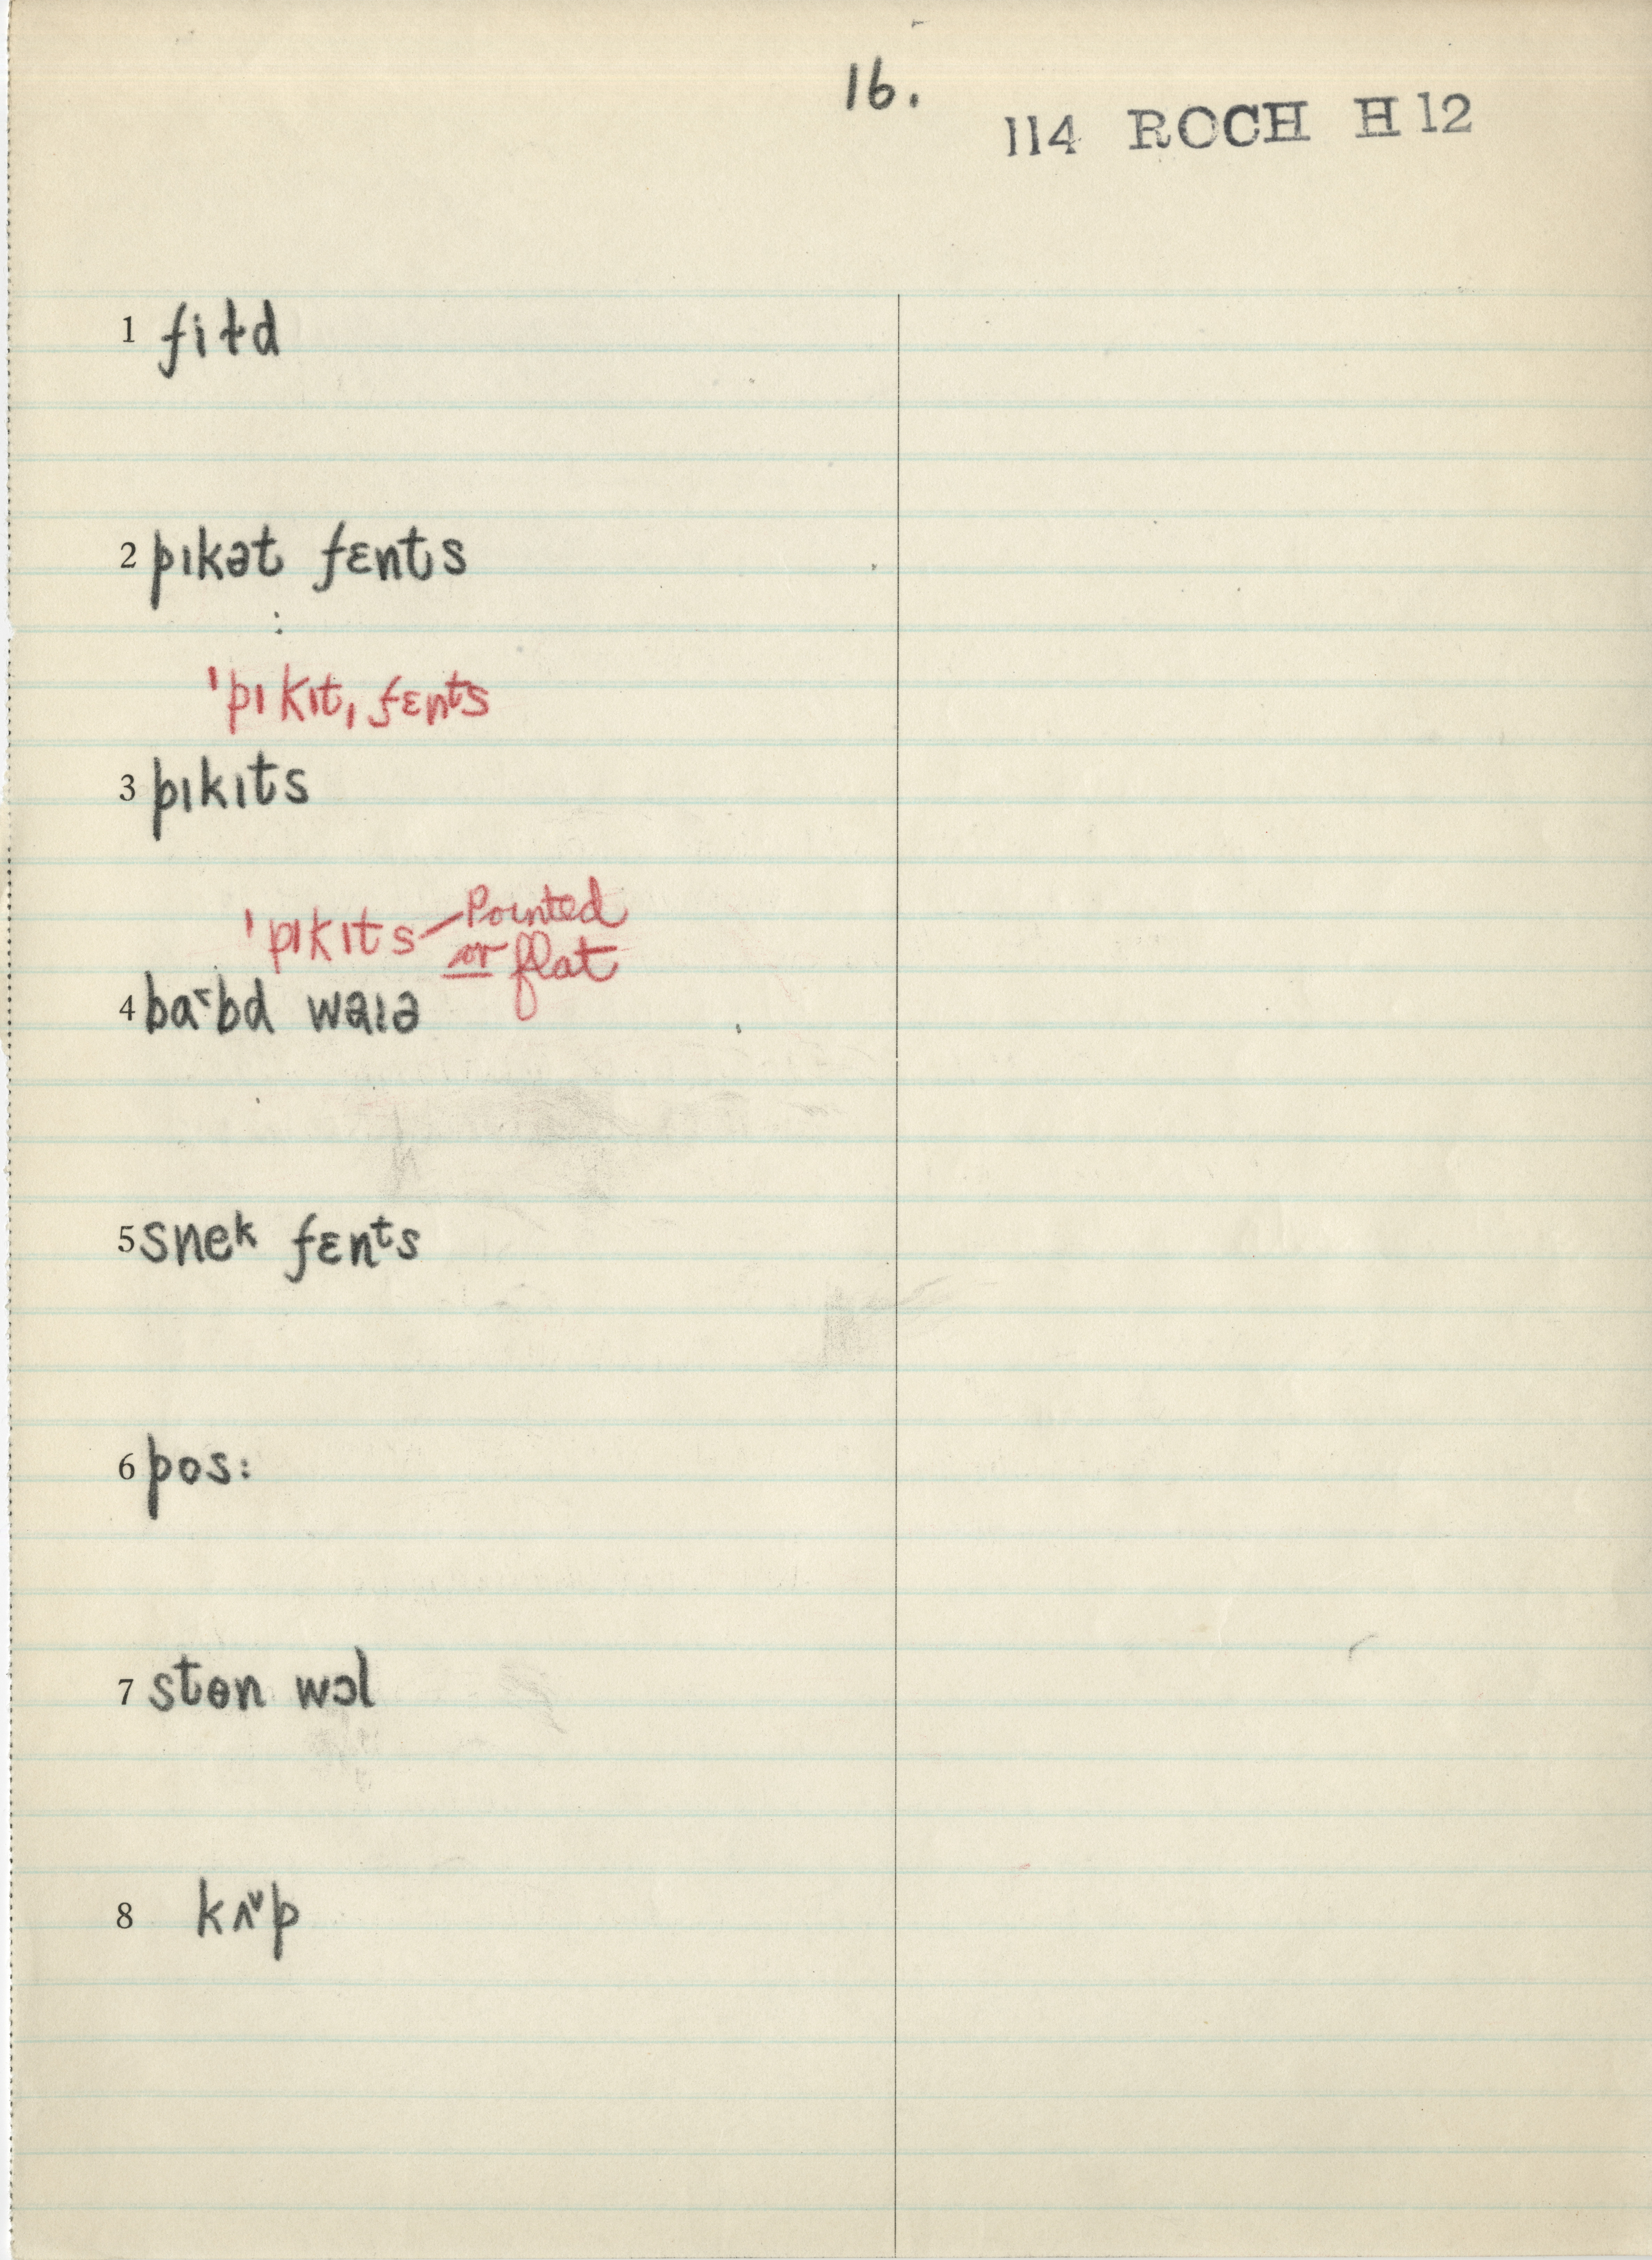 16.
114 ROCH H 12
1 fiɫd
2 pɪkət fɛnts
ˈpɪkɪtˌfɛnts
3 pɪkɪts
ˈpɪkɪts — Pointed
or flat
4 ba˂bd waɪə
5 sneᵏ fɛnᵗs
6 pos:
7 stɵn wɔl
8 kʌ˅p